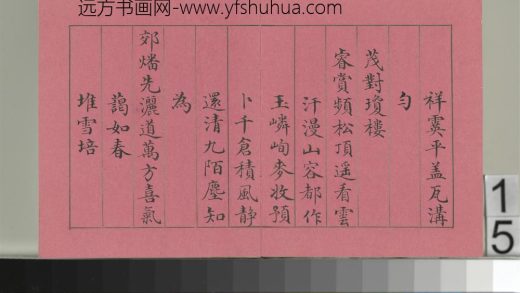 远方书画网-www.yfshuhua.com
祥霙平盖瓦溝
勻
茂對瓊樓
睿賞頻松頂遥看雲
汗漫山容都作
玉嶙峋麥收預
卜千倉積風静
還清九陌塵知
為
郊燔先灑道萬方喜氣
藹如春
堆雪培
15